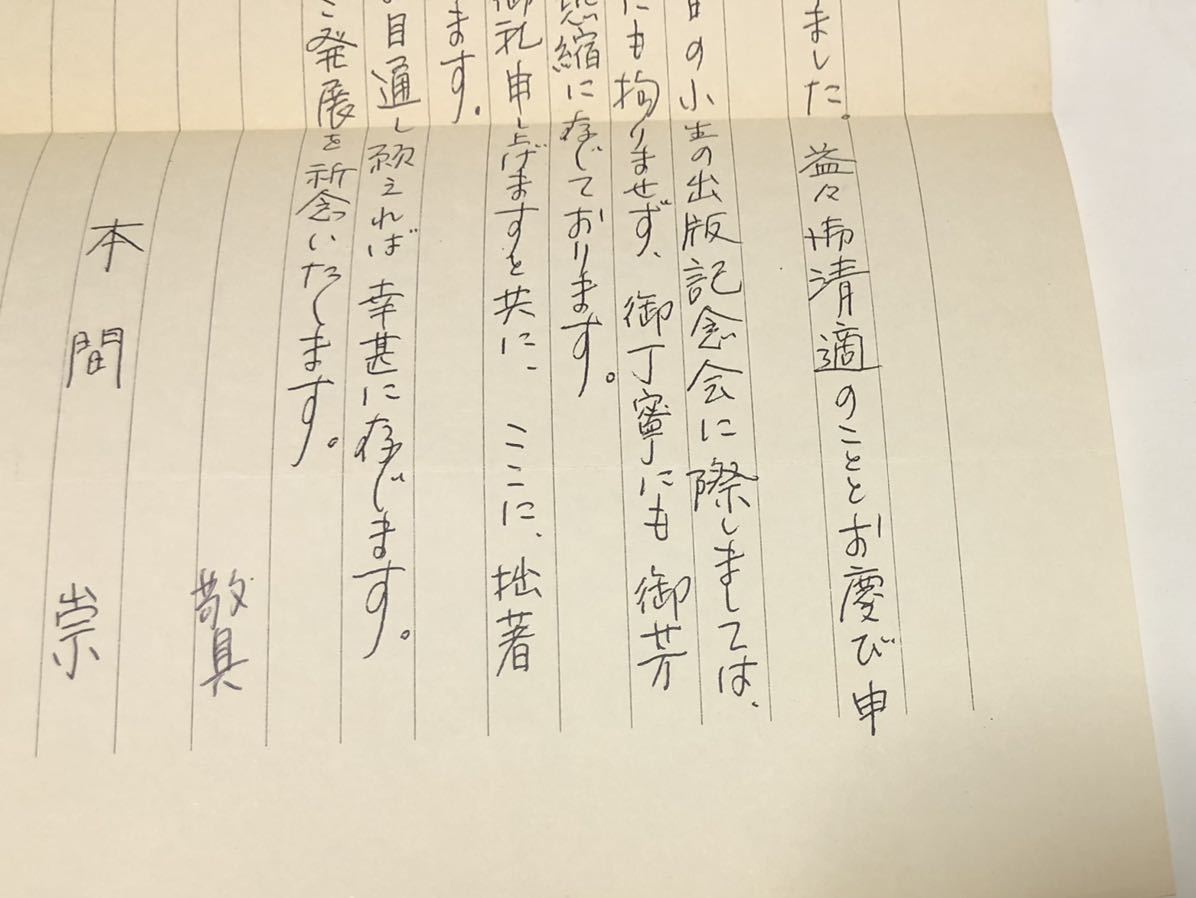 ました。益々御清適のこととお慶び申
日の小生の出版記念会に際しましては、
にも拘りませず、御丁寧にも御芳
恐縮に存じております。
御礼申し上げますと共に、ここに、拙著
ます。
目通し願えれば幸甚に存じます。
ご発展を祈念いたします。
敬具
本間 崇